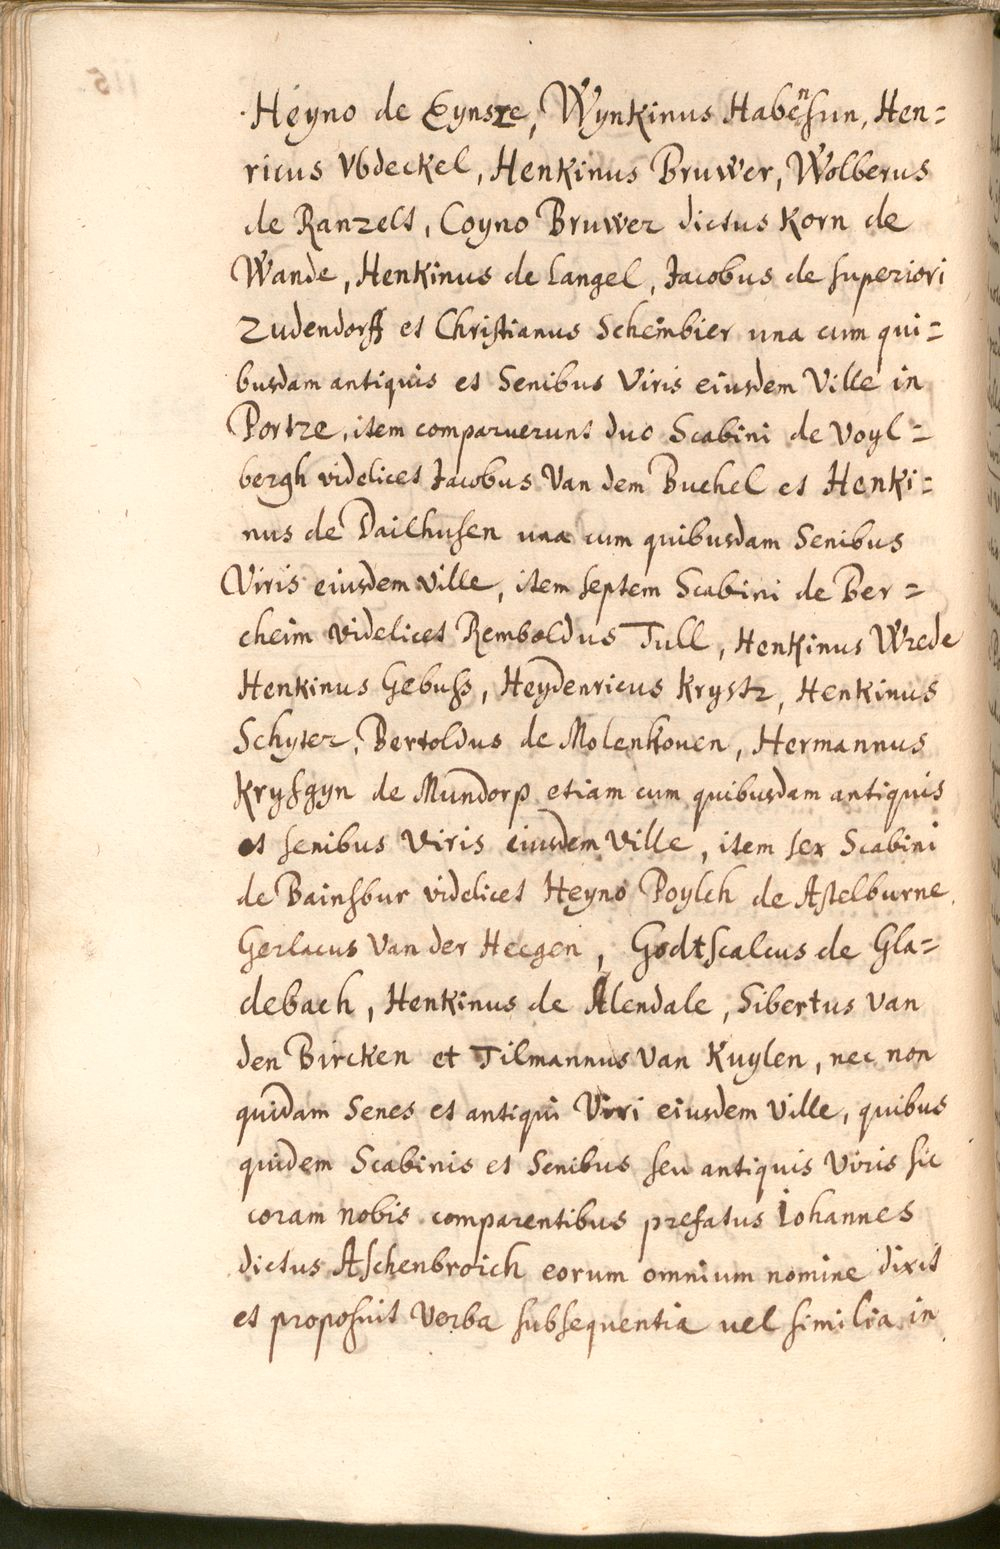 Heyno de Eynsze, Wynkinus Habensun, Hen=
ricus Vbdeckel, Henkinus Bruwer, Wolberus
de Ranzelt, Coyno Bruwer dictus Korn de
Wande, Henkinus de Langel, Jacobus de superiori
Zudendorff et Christianus Scheinbier una cum qui=
busdam antiquis et Senibus Viris eiusdem Ville in
Portze, item comparuerunt duo Scabini de Voyl=
bergh videlicet Jacobus Van dem Buchel et Henki=
nus de Dailhusen una cum quibusdam Senibus
Viris eiusdem ville, item septem Scabini de Ber=
cheim videlicet Remboldus Tull, Henkinus Wrede
Henkinus Gebuss, Heydenricus Krystz, Henkinus
Schyter, Bertoldus de Molenkouen, Hermannus
Krysgyn de Mundorp etiam cum quibusdam antiquis
et senibus Viris eiusdem Ville, item sex Scabini
de Bainsbur videlicet Heyno Poylch de Astelburne,
Gerlacus Van der Heegen, Godtscalcus de Gla=
debach, Henkinus de Alendale, Sibertus Van
den Bircken et Tilmannus Van Kuylen, nec non
quidam Senes et antiqui Viri eiusdem Ville, quibus
quidem Scabinis et Senibus seu antiquis Viris sic
coram nobis comparentibus prefatus Iohannes
dictus Aschenbroich eorum omnium nomine dixit
et proposuit Verba subsequentia uel similia in